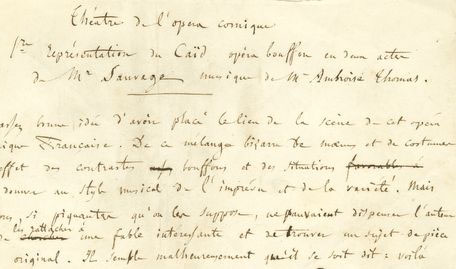 Théâtre de l'opera comique
1re Représentation du Caïd opéra bouffon en deux actes
de Mr Sauvage musique de Mr Ambroise Thomas.
assez bonne idée d'avoir placé le lieu de la scène de cet opéra
ique Française. De ce mélange bizarre de mœurs et de costumes
effet des contrastes bouffons et des situations favorables à
donner au style musical de l'imprévu et de la variété. Mais
si piquantes qu'on les suppose, ne pouvaient dispenser l'auteur
les rattacher à
de chercher une fable intéressante et de trouver un sujet de pièce
original. Il semble malheureusement qu'il se soit dit : voilà